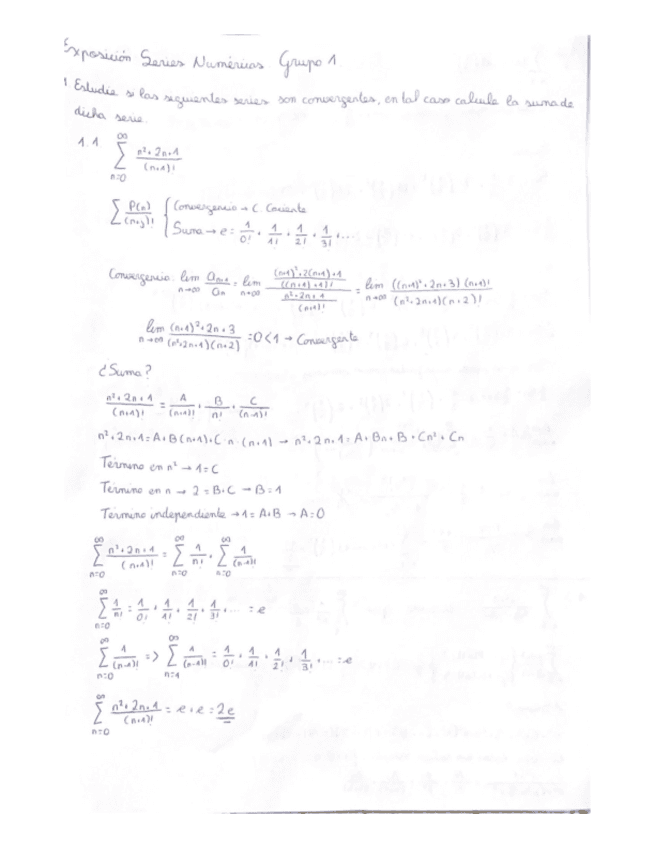 Exposición Series Numéricas. Grupo 1
1 Estudie si las siguientes series son convergentes, en tal caso calcule la suma de
dicha serie.
1.1 ∑_{n=0}^{∞} (n²+2n+1)/(n+1)!
∑ P(n)/(n+j)! { Convergencia → C. Cociente
Suma → e = 1/0! + 1/1! + 1/2! + 1/3! + ...
Convergencia: lim_{n→∞} a_{n+1}/a_n = lim_{n→∞} (((n+1)²+2(n+1)+1)/((n+1)+1)!)/((n²+2n+1)/(n+1)!) = lim_{n→∞} ((n+1)²+2n+3)(n+1)!/((n²+2n+1)(n+2)!)
lim_{n→∞} ((n+1)²+2n+3)/((n²+2n+1)(n+2)) = 0 < 1 → Convergente
¿Suma?
(n²+2n+1)/(n+1)! = A/(n+1)! + B/n! + C/(n-1)!
n²+2n+1 = A+B(n+1)+C·n·(n+1) → n²+2n+1 = A+Bn+B+Cn²+Cn
Término en n² → 1=C
Término en n → 2=B+C → B=1
Término independiente → 1=A+B → A=0
∑_{n=0}^{∞} (n²+2n+1)/(n+1)! = ∑_{n=0}^{∞} 1/n! + ∑_{n=0}^{∞} 1/(n-1)!
∑_{n=0}^{∞} 1/n! = 1/0! + 1/1! + 1/2! + 1/3! + ... = e
∑_{n=0}^{∞} 1/(n-1)! => ∑_{n=1}^{∞} 1/(n-1)! = 1/0! + 1/1! + 1/2! + 1/3! + ... = e
∑_{n=0}^{∞} (n²+2n+1)/(n+1)! = e+e = 2e